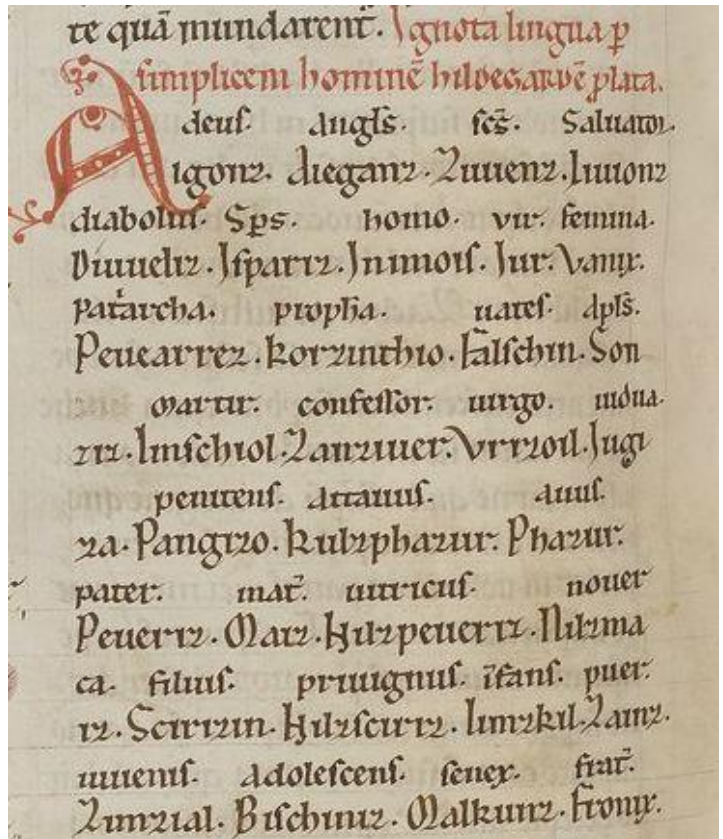 te quā mundarent᷒. Ignota lingua ꝑ
simplicem hominē hildegardē ꝓlata.
deus. angls̄. scs̄. Saluator.
Aigonz. aieganz. Zuuenz. Liuionz
diabolus. Sp̄s. homo. vir. femina.
Diuueliz. Jspariz. Jnimois. Jur. Vanix.
Pat᷒archa. proph̄a. uates. apls̄.
Peuearrez. korzinthio. falschin. Son
martir. confessor. uirgo. uidua.
ziz. Linschiol. Zanziuer. Vrrzoil. Jugi
penitens. attauus. auus.
za. Pangizo. kulzphazur. Phazur.
pater. mat᷒. uitricus. nouer
Peueriz. Maiz. Hilzpeueriz. Nilzma
ca. filius. priuignus. īfans. puer.
iz. Scirizin. Hilzsciriz. Limzkil. Zainz.
iuuenis. adolescens. senex. frat᷒.
Zunzial. Bischiniz. Malkunz. fronix.